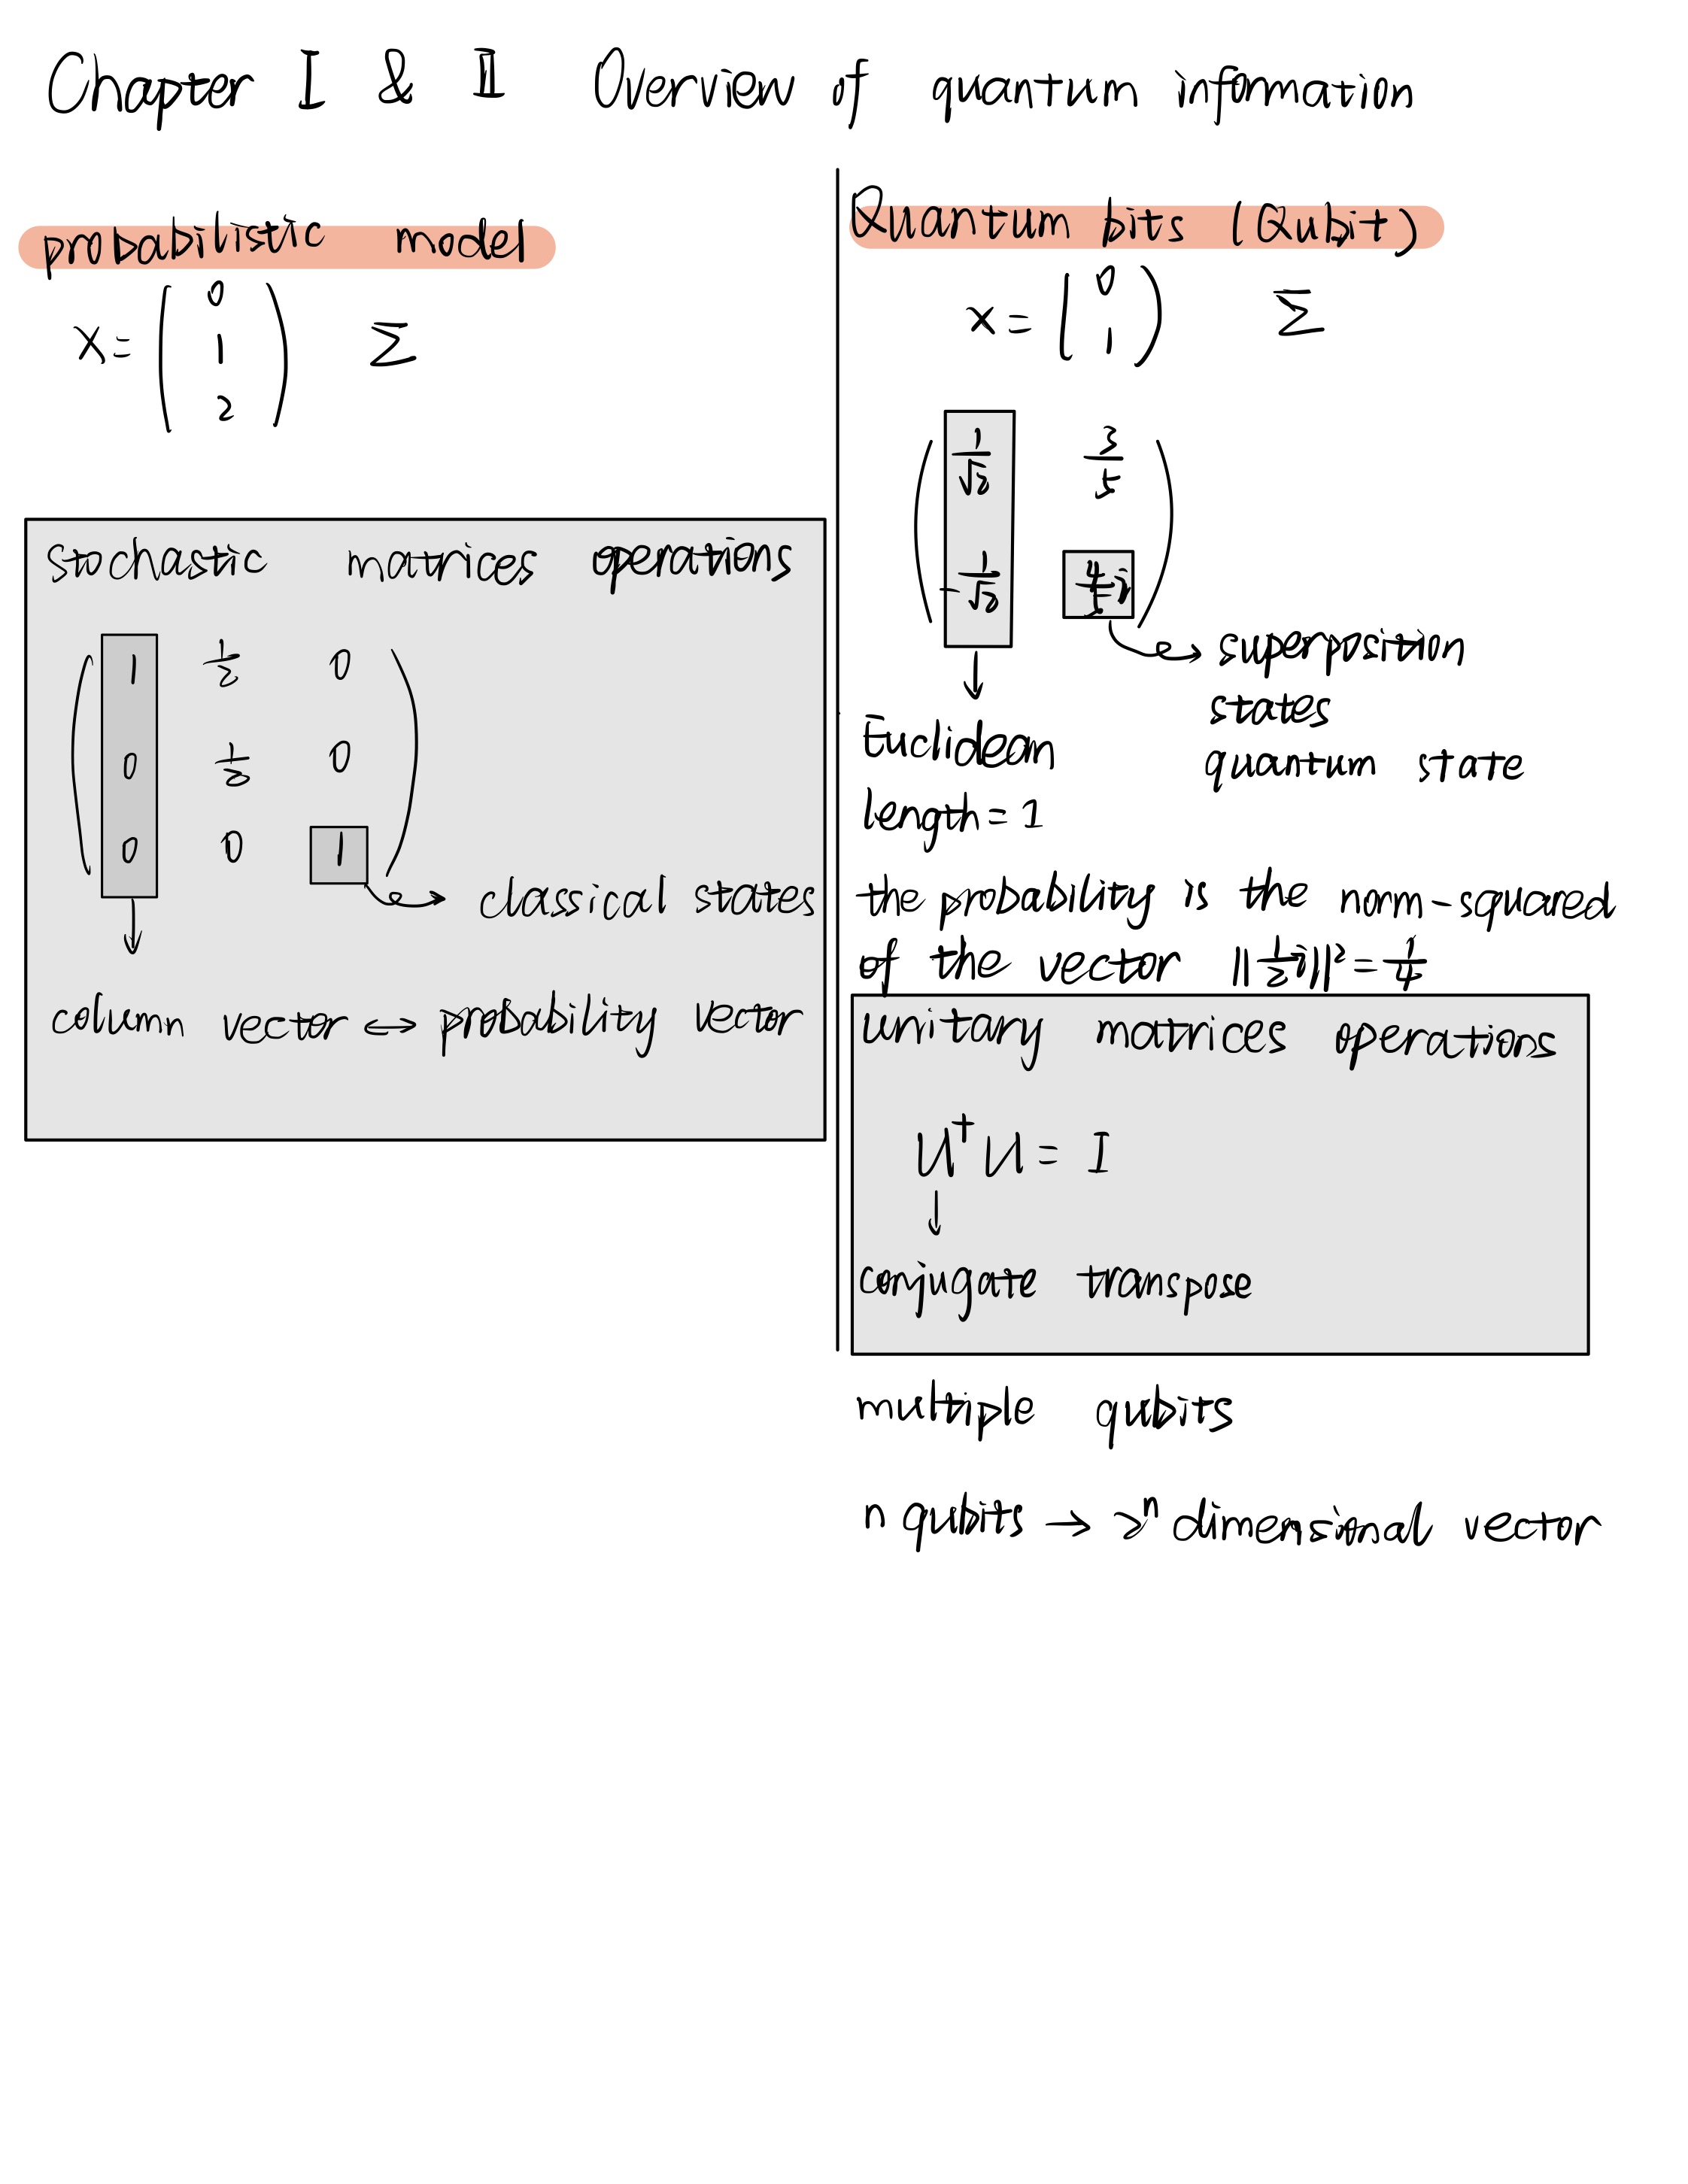 Chapter I & II Overview of quantum information
probabilistic model
X = ( 0
1
2 ) Σ
stochastic matrices operations
( 1 1/2 0
0 1/2 0
0 0 1 )
classical states
column vector ↔ probability vector
Quantum bits (Qubit)
x = ( 0
1 ) Σ
( 1/√2 3/5
-1/√2 4/5 i )
superposition
states
quantum state
Euclidean
length = 1
the probability is the norm-squared
of the vector ||1/2 i||² = 1/4
unitary matrices operations
U† U = I
↓
conjugate transpose
multiple qubits
n qubits → 2ⁿ dimensional vector